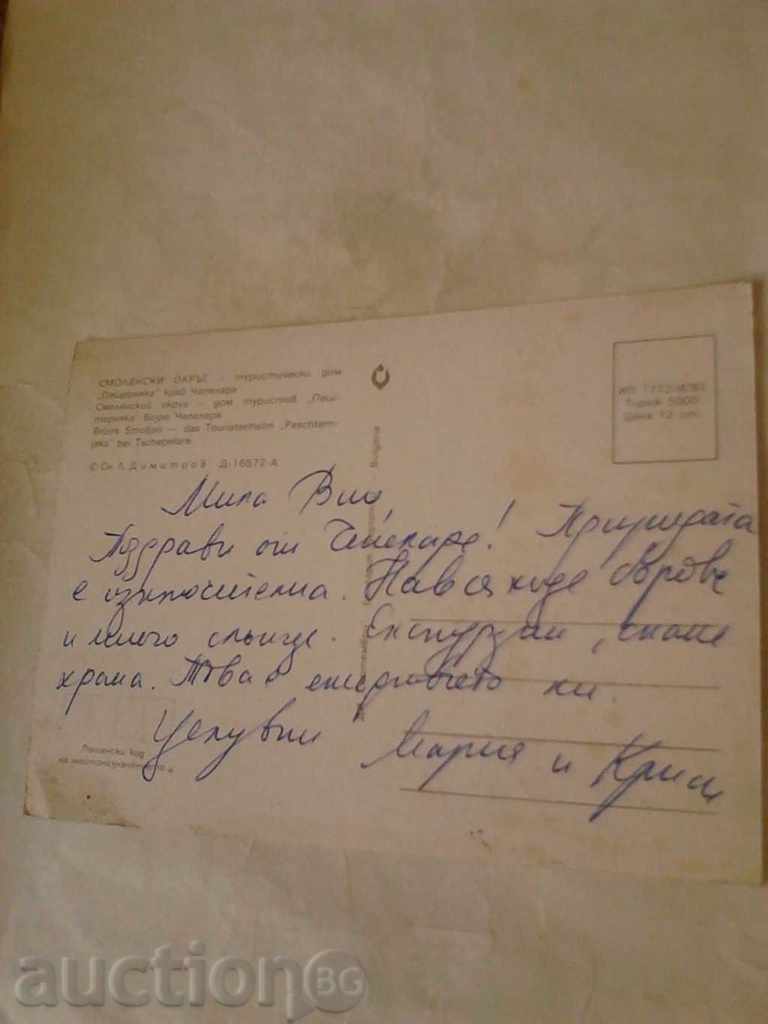 СМОЛЕНСКИ ОКРЪГ — туристически дом
„Пещерняка" край Чепеларе
Смоленский округ — дом туристов „Пеш-
терняка" возле Чепеларе
Bezirk Smoljan — das Touristenheim „Peschtern-
jaka" bei Tschepelare
© Сн. Л. Димитров Д-16572-А
Тираж 5000
Цена 12 ст.
Bulgaria
Мила Вио,
Поздрави от Чепеларе! Природата
е изключителна. Навсякъде борове
и много слънце. Екскурзии, скане
храна. Това е ежедневието ни.
Целувки Мария и Криси
Пощенски код
на местоназначението
auctionBG